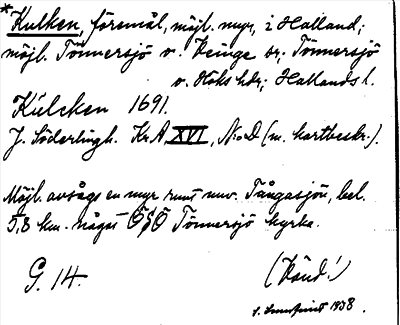 *Kulken, föremål, möjl. myr, i Halland;
möjl. Tönnersjö v. Veinge sn, Tönnersjö
o. Höks hdr; Hallands l.
Kulcken 1691.
J. Söderlingh. Kr.A. XVI, N:o D (m. kartbeskr.).
Möjl. avsågs en myr runt nuv. Tångasjön, bel.
5,8 km. något Ö§Ö Tönnersjö kyrka.
G. 14.
1938.